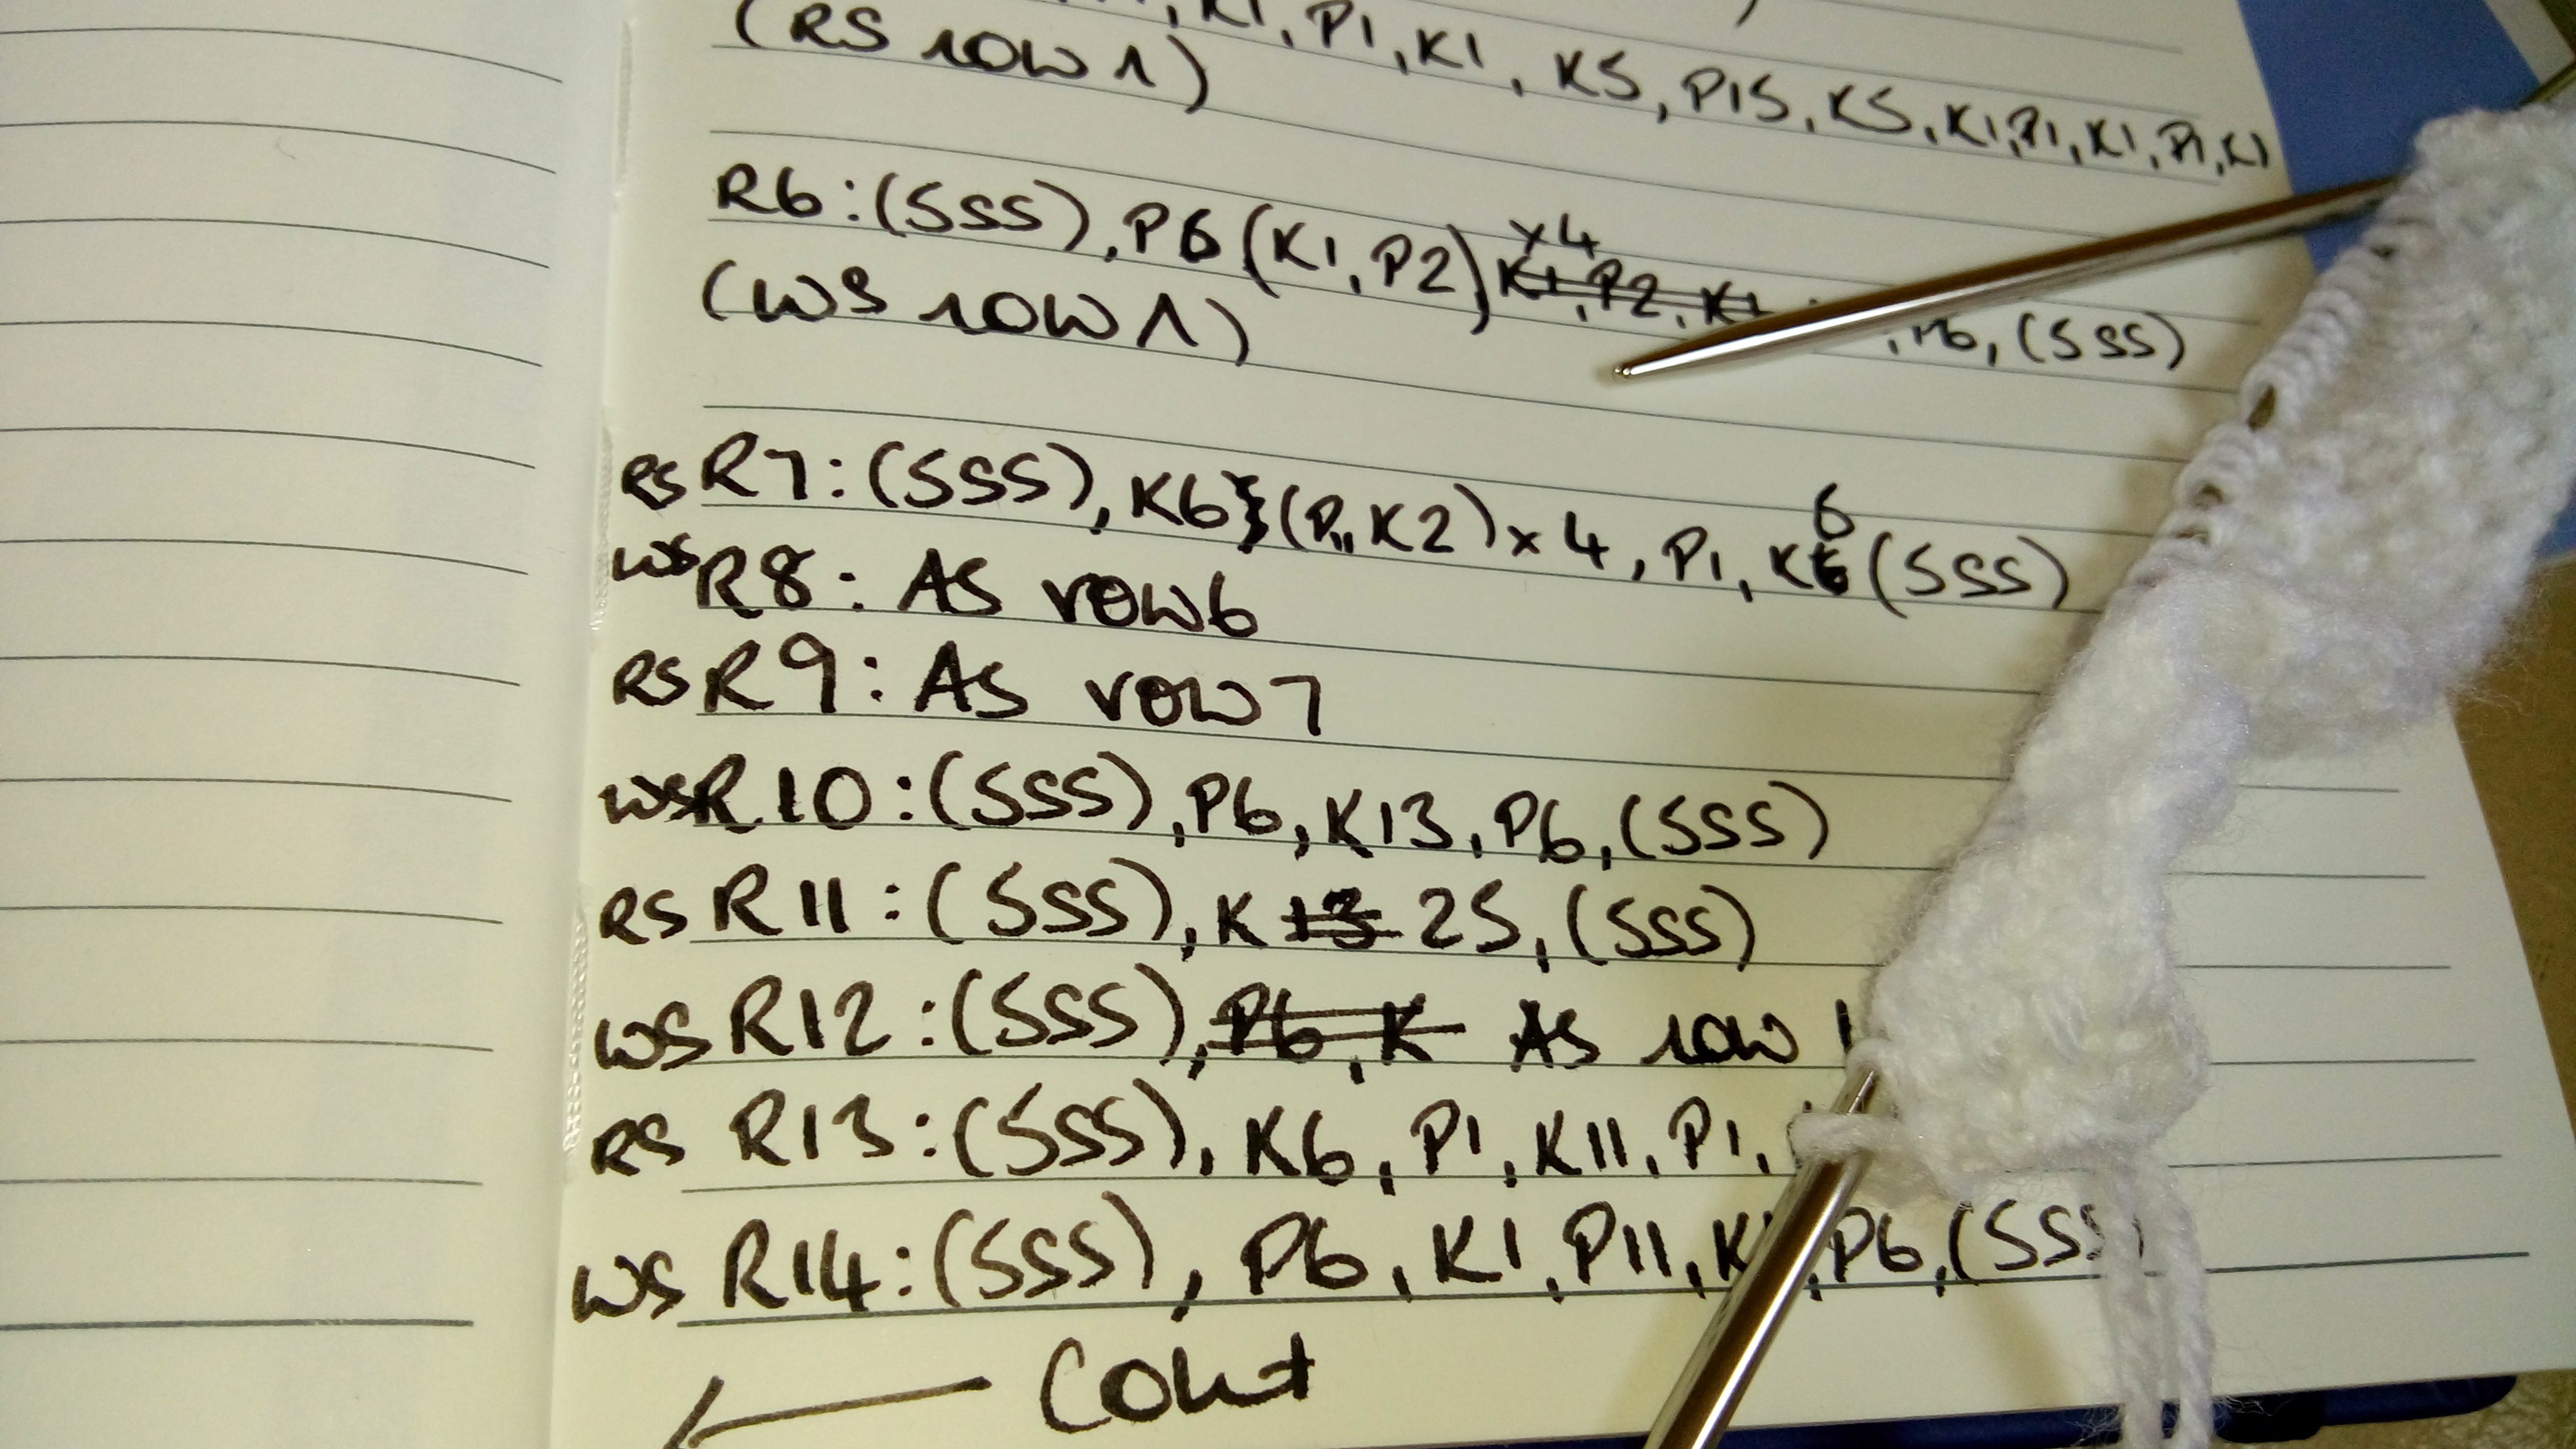 K1, P1, K1, K5, P15, K5, K1, P1, K1, P1, K1
(RS row 1)
R6: (SSS), P6 (K1, P2) x4 K1, P2, K1 , P6, (SSS)
(WS row 1)
RS R7: (SSS), K6 (P1, K2) x 4, P1, K6 (SSS)
WS R8: AS row 6
RS R9: AS row 7
WS R10: (SSS), P6, K13, P6, (SSS)
RS R11: (SSS), K 13 25, (SSS)
WS R12: (SSS), P6, K AS row
RS R13: (SSS), K6, P1, K11, P1,
WS R14: (SSS), P6, K1, P11, K1, P6, (SSS)
Cont